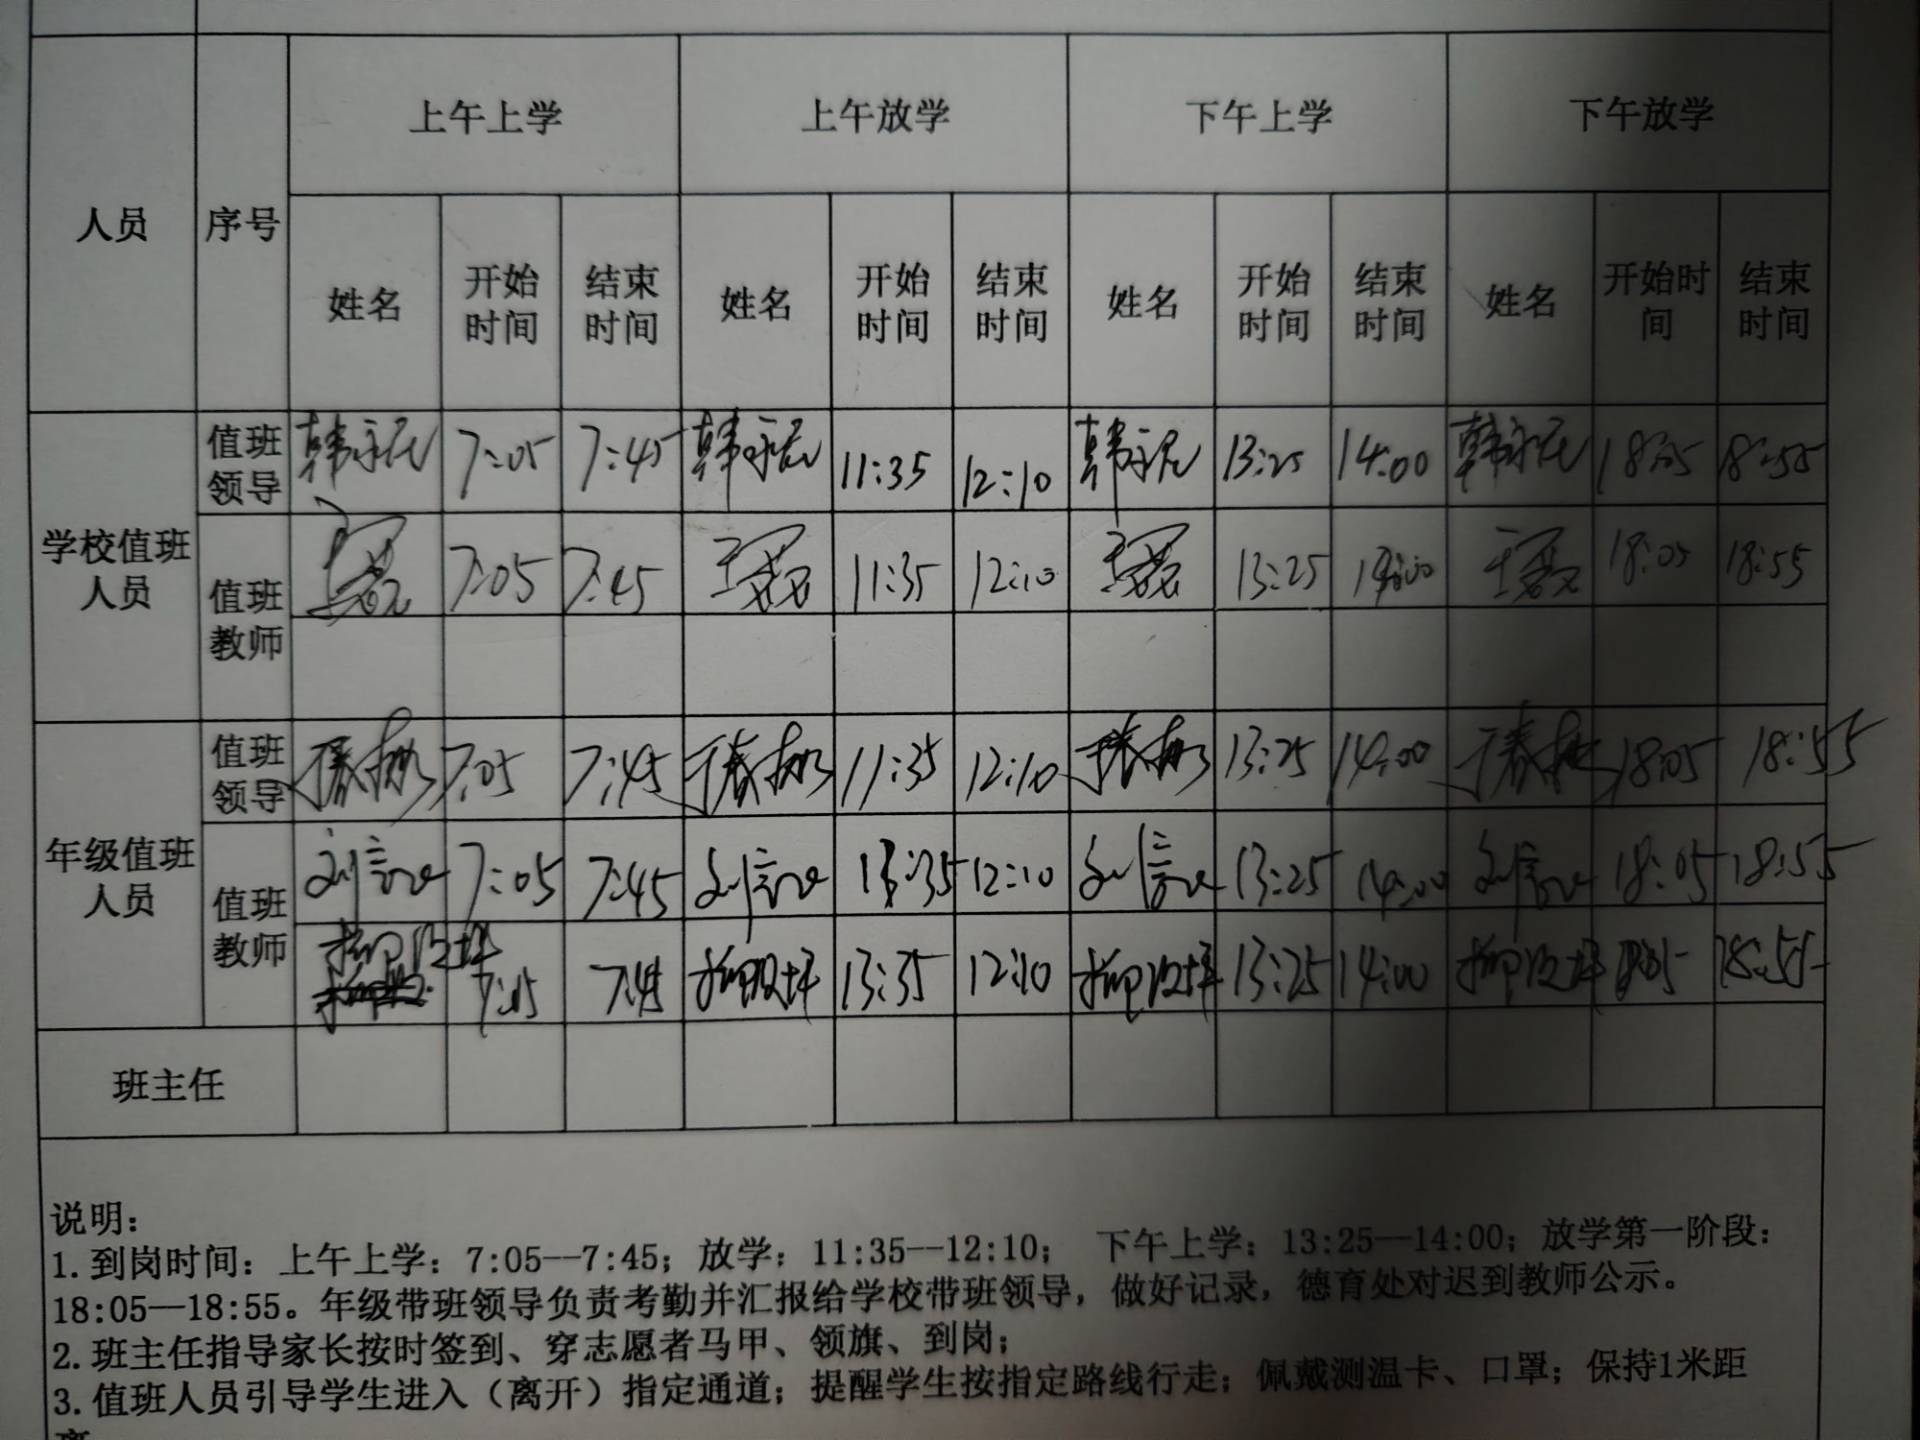 上午上学 上午放学 下午上学 下午放学
人员 序号 姓名 开始时间 结束时间 姓名 开始时间 结束时间 姓名 开始时间 结束时间 姓名 开始时间 结束时间
学校值班人员
值班领导 7:05 7:45 11:35 12:10 13:25 14:00 18:05 18:55
值班教师 7:05 7:45 11:35 12:10 13:25 14:00 18:05 18:55
年级值班人员
值班领导 7:05 7:45 11:35 12:10 13:25 14:00 18:05 18:55
值班教师 7:05 7:45 13:35 12:10 13:25 14:00 18:05 18:55
7:45 13:35 12:10 13:25 14:00 18:55
班主任
说明：
1.到岗时间：上午上学：7:05—7:45；放学：11:35—12:10； 下午上学：13:25—14:00；放学第一阶段：
18:05—18:55。年级带班领导负责考勤并汇报给学校带班领导，做好记录，德育处对迟到教师公示。
2.班主任指导家长按时签到、穿志愿者马甲、领旗、到岗；
3.值班人员引导学生进入（离开）指定通道；提醒学生按指定路线行走；佩戴测温卡、口罩；保持1米距